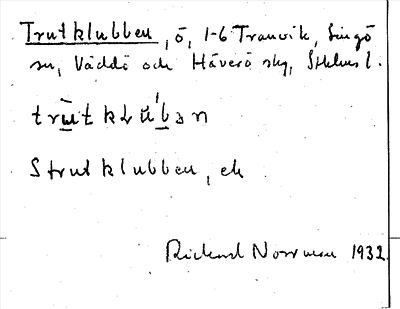 Trutklubben, ö, 1-6 Tranvik, Singö
sn, Väddö och Häverö skg, Sthlms l.
trùtklúbən
Strutklubben, ek
Rickard Norrman 1932.